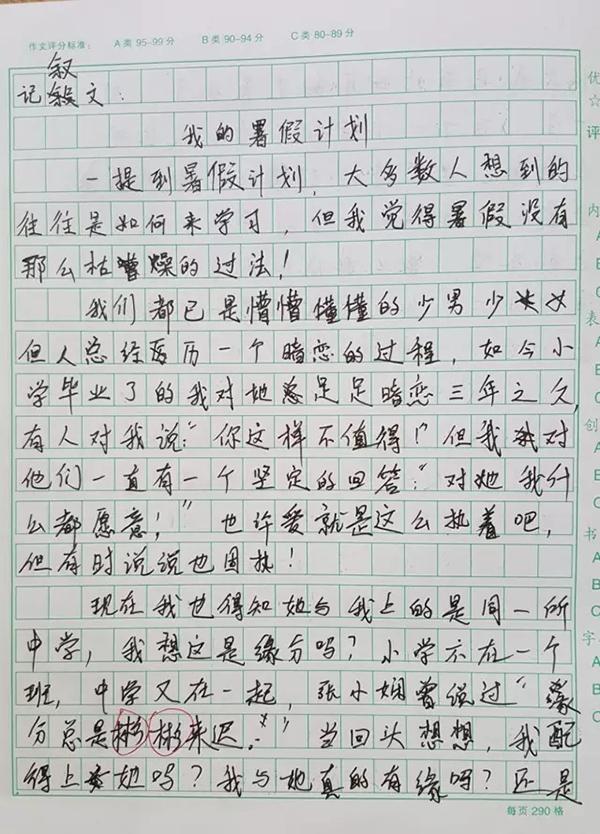 作文评分标准： A类 95-99分 B类 90-94分 C类 80-89分
叙
记文：
我的暑假计划
一提到暑假计划，大多数人想到的
往往是如何来学习，但我觉得暑假没有
那么枯燥的过法！
我们都已是懵懵懂懂的少男少女
但人总经历一个暗恋的过程，如今小
学毕业了的我对她总足足暗恋三年之久，
有人对我说：“你这样不值得！”但我对
他们一直有一个坚定的回答：“对她我什
么都愿意！”也许爱就是这么执着吧，
但有时说说也固执！
现在我也得知她与我上的是同一所
中学，我想这是缘分吗？小学不在一个
班，中学又在一起，张小娴曾说过“缘
分总是彬彬来迟。”当回头想想，我配
得上她吗？我与她真的有缘吗？还是
每页290格
优
☆
评
内
A
B
C
表
A
B
C
创
A
B
C
书
A
B
C
字
A
B
C